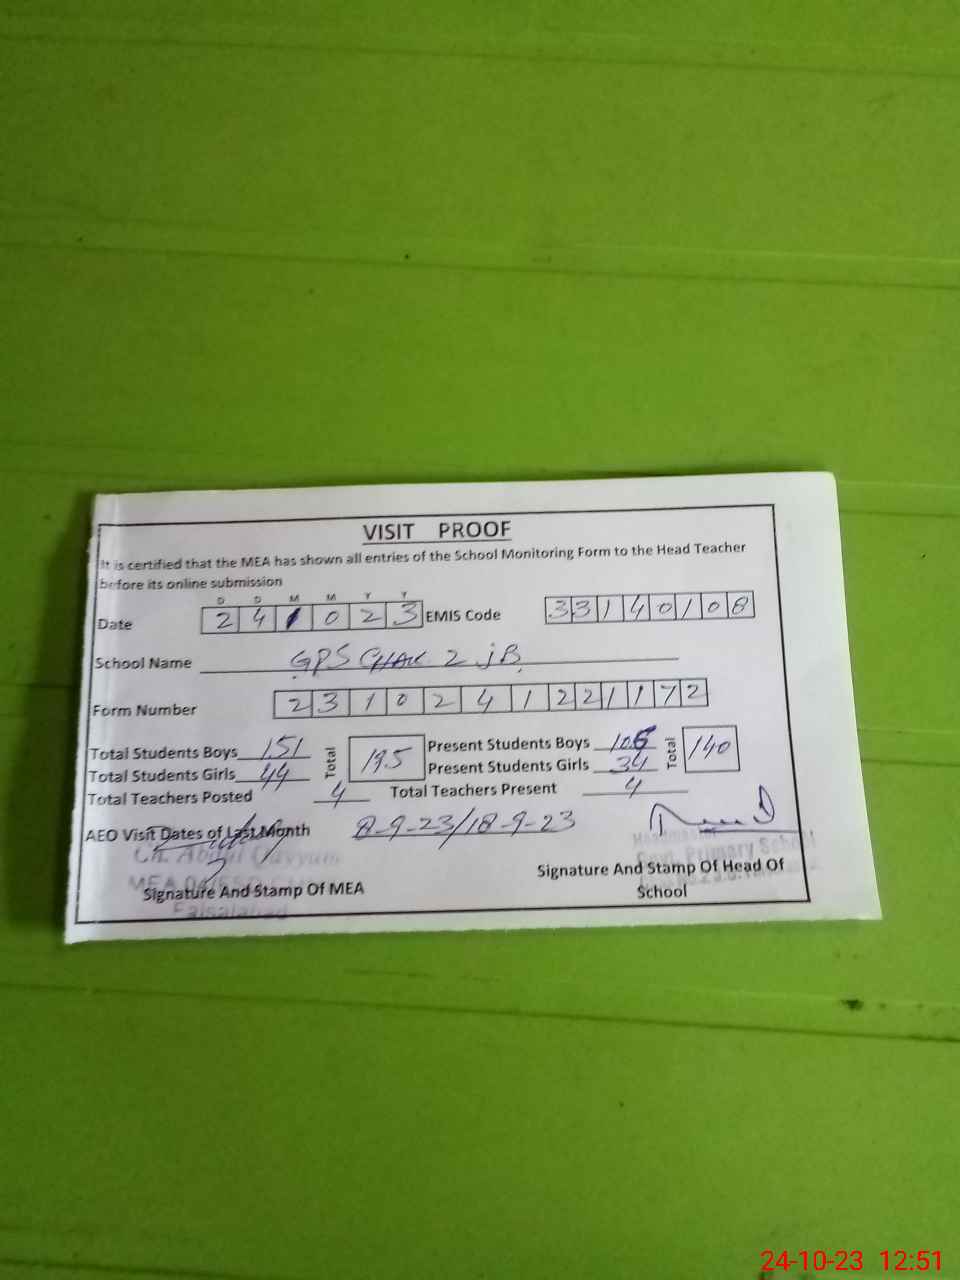 VISIT PROOF
It is certified that the MEA has shown all entries of the School Monitoring Form to the Head Teacher
before its online submission
D D M M Y Y
Date 24 10 23 EMIS Code 33140108
School Name GPS CHAK 2 JB
Form Number 2310241221172
Total Students Boys 151 Total 195 Present Students Boys 106 Total 140
Total Students Girls 44 Present Students Girls 34
Total Teachers Posted 4 Total Teachers Present 4
AEO Visit Dates of Last Month 8-9-23/18-9-23
Ch. Abdul Qayyum Headmaster
MEA Govt. Primary School
Signature And Stamp Of MEA Signature And Stamp Of Head Of
Faisalabad School
24-10-23 12:51